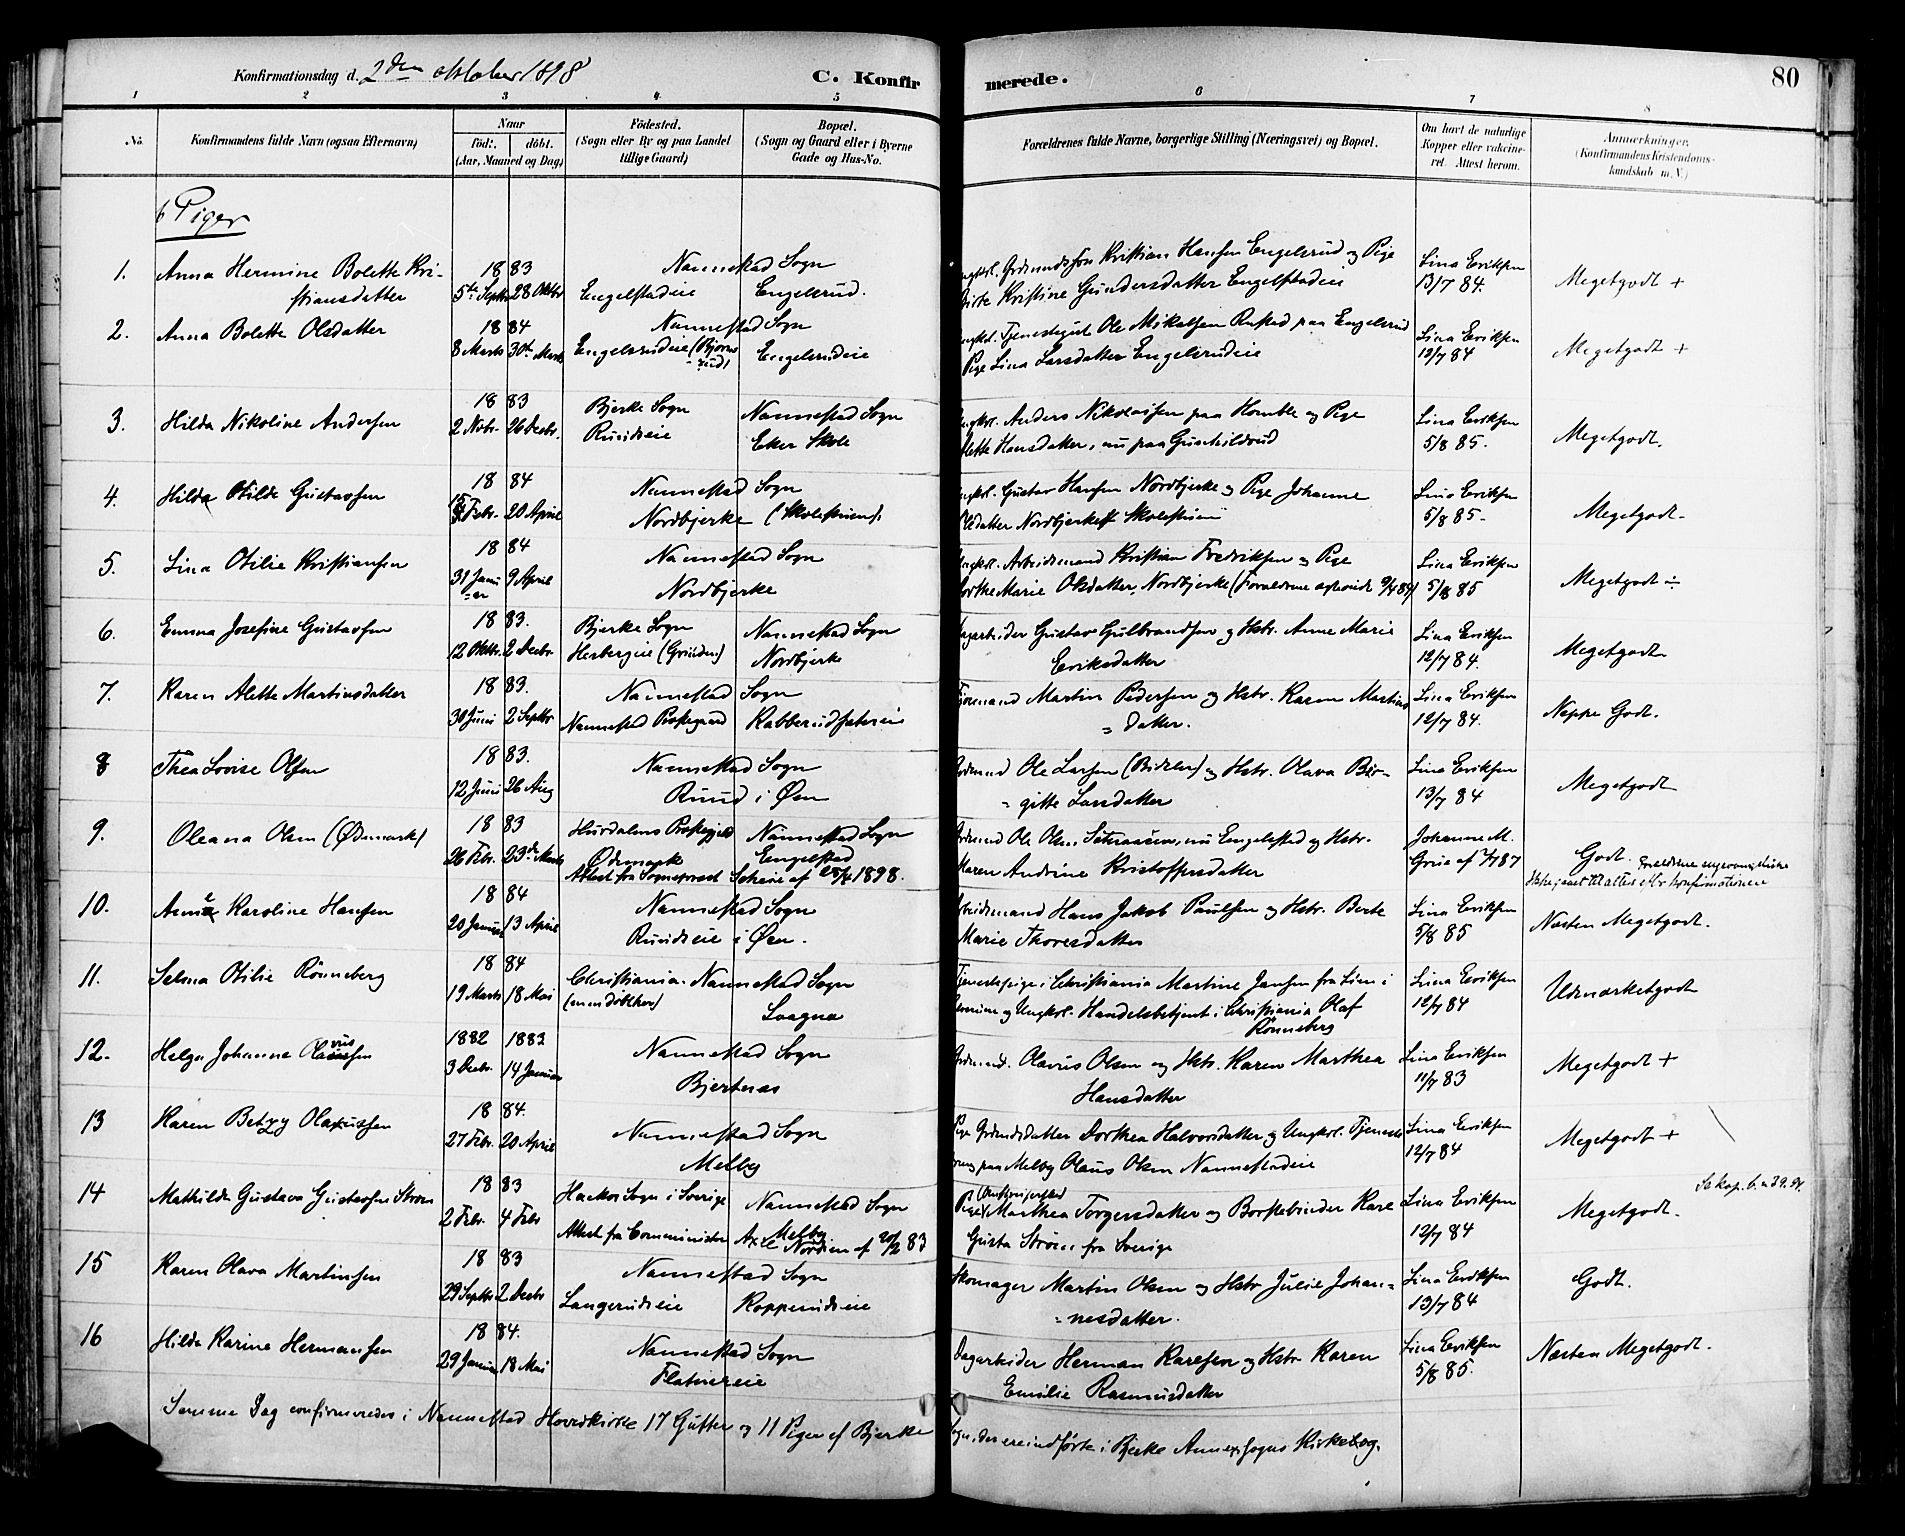 Konfirmationsdag d. 2den oktober 1898 C. Konfirmerede. 80
1 2 3 4 5 6 7 8
No. Konfirmandens fulde Navn (ogsaa Efternavn) Naar født. døbt. (Aar, Maaned og Dag) Födested. (Sogn eller By og paa Landet tillige Gaard) Bopæl. (Sogn og Gaard eller i Byerne Gade og Hus-No. Forældrenes fulde Navne, borgerlige Stilling (Næringsvei) og Bopæl. Om havt de naturlige Kopper eller vakcineret. Attest herom. Anmerkninger. (Konfirmandens Kristendomskundskab m. V.)
Piger
1. Anna Hermine Bolette Kri- 18 83 Nannestad Sogn Kristian Hansen Engelsrud og Pige Lina Eriksen
stiansdatter 5te Septbr 28 Oktbr Engelstadeie Engelsrud. Kristine Gundersdatter Engelstadeie 13/7 84. Megetgodt +
2. Anna Bolette Olsdatter 18 84 Nannestad Sogn Ole Mikalsen Rustad paa Engelsrud Lina Eriksen
8 Marts 30te Marts Engelsrudeie (Bjørnsrud) Engelsrudeie Pige Lina Larsdatter Engelsrudeie 12/7 84 Megetgodt +
3. Hilda Nikoline Andersen 18 83 Bjerke Sogn Nannestad Sogn Anders Nikolaisen paa Homble og Pige Lina Eriksen
2 Novbr. 26 Decbr. Ruudseie Eker Skole Hansdatter, nu paa Gunhildrud 5/8 85. Megetgodt.
4. Hilda Otilde Gustavsen 18 84 Nannestad Sogn Gustav Hansen Nordbjerke og Pige Johanne Lina Eriksen
15 Febr. 20 April Nordbjerke (Skolestuen). Nordbjerke Skolestuen 5/8 85- Megetgodt-
5. Lina Otilie Kristiansen 18 84 Nannestad Sogn Arbeidsmand Kristian Fredriksen og Pige Lina Eriksen
31 Januer 9 April Nordbjerke Marie Olsdatter, Nordbjerke (Forældrene egteviede 9/4 84) 5/8 85 Megetgodt ÷
6. Emma Josefine Gustavsen 18 83. Bjerke Sogn Nannestad Sogn Dagarbeider Gustav Gulbrandsen og Hstr. Anne Marie Lina Eriksen
12 Oktbr. 2 Decbr. Herbergeie (Grinden) Nordbjerke Eriksdatter 12/7 84. Megetgodt
7. Karen Alette Martinsdatter 18 83. Nannestad Sogn Martin Pedersen og Hstr. Karen Martins Lina Eriksen
30 Juni 2 Septbr Nannestad Prestegaard Rabberudsæteren =datter. 12/7 84. Neppe Godt.
8 Thea Lovise Olsen 18 83. Nannestad Sogn Ole Larsen og Hstr. Olava Bir- Lina Eriksen
12 Juni 26 Aug Ruud i Øen =gitte Larsdatter 13/7 84 Megetgodt
9. Oleana Olsen (Ødemark) 18 83 Hurdalens Prestegjeld Nannestad Sogn Ole Olsen nu Engelstad og Hstr. Johanne M.
26 Febr. 23de Marts Ødemark Engelstad Maren Andrine Kristoffersdatter Grua af 7/7 87 Godt.
Attest fra Sogneprest Scheie af 1898.
10. Anne Karoline Hansen 18 84 Nannestad Sogn Arbeidsmand Hans Jakob Paulsen og Hstr. Berte Lina Eriksen
20 Januar 13 April Ruudseie i Øen. Marie Thoresdatter 5/8 85 Næsten Megetgodt.
11. Selma Otilie Rönneberg 18 84 Christiania. Nannestad Sogn Tjenestepige i Christiania Martine Jansen fra Lien i Lina Eriksen
19 Marts 18 Mai Laagna og Ungkrl. Handelsbetjent i Christiania Olaf 12/7 84 Udmærketgodt
Rönneberg
12. Helga Johanne Olavussen 1882 1883 Nannestad Sogn Olavus Olsen og Hstr. Karen Marthea Lina Eriksen
3 Decbr. 14 Januar Bjertnæs Hansdatter 11/7 83 Megetgodt +
13 Karen Betzy Olausen 18 84. Nannestad Sogn Pige Dorthea Halvorsdatter og Ungkrl. Tjeneste- Lina Eriksen
27 Febr. 20 April Melby dreng paa Melby Olaus Olsen Nannestadeie 12/7 84 Megetgodt +
14 Mathilde Gustava Gustavsen Strøm 18 83 Sogn i Sverige Nannestad Sogn Pige Marthea Torgersdatter og Børstebinder Kare Lina Eriksen
2 Febr. 4 Febr Melby Gusta Strøm fra Sverige 12/7 84 Megetgodt.
Attest fra Comminister Axel Nordien af 20/2 83
15 Karen Olava Martinsen 18 83 Nannestad Sogn Skomager Martin Olsen og Hstr Julie Johan= Lina Eriksen
29 Septbr 2 Decbr Langerudseie Kopperudseie =nesdatter. 13/7 84 Godt.
16 Hilda Karine Hermansen 18 84. Nannestad Sogn Dagarbeider Herman Karesen og Hstr Karen Lina Eriksen
29 Januar 18 Mai Flatnereie Emilie Rasmusdatter 5/8 85. Næsten Megetgodt.
Samme Dag confirmeredes i Nannestad Hovedkirke 17 Gutter og 11 Piger af Bjerke Sogn, der ere indførte i Bjerke Annexsogns Kirkebog.